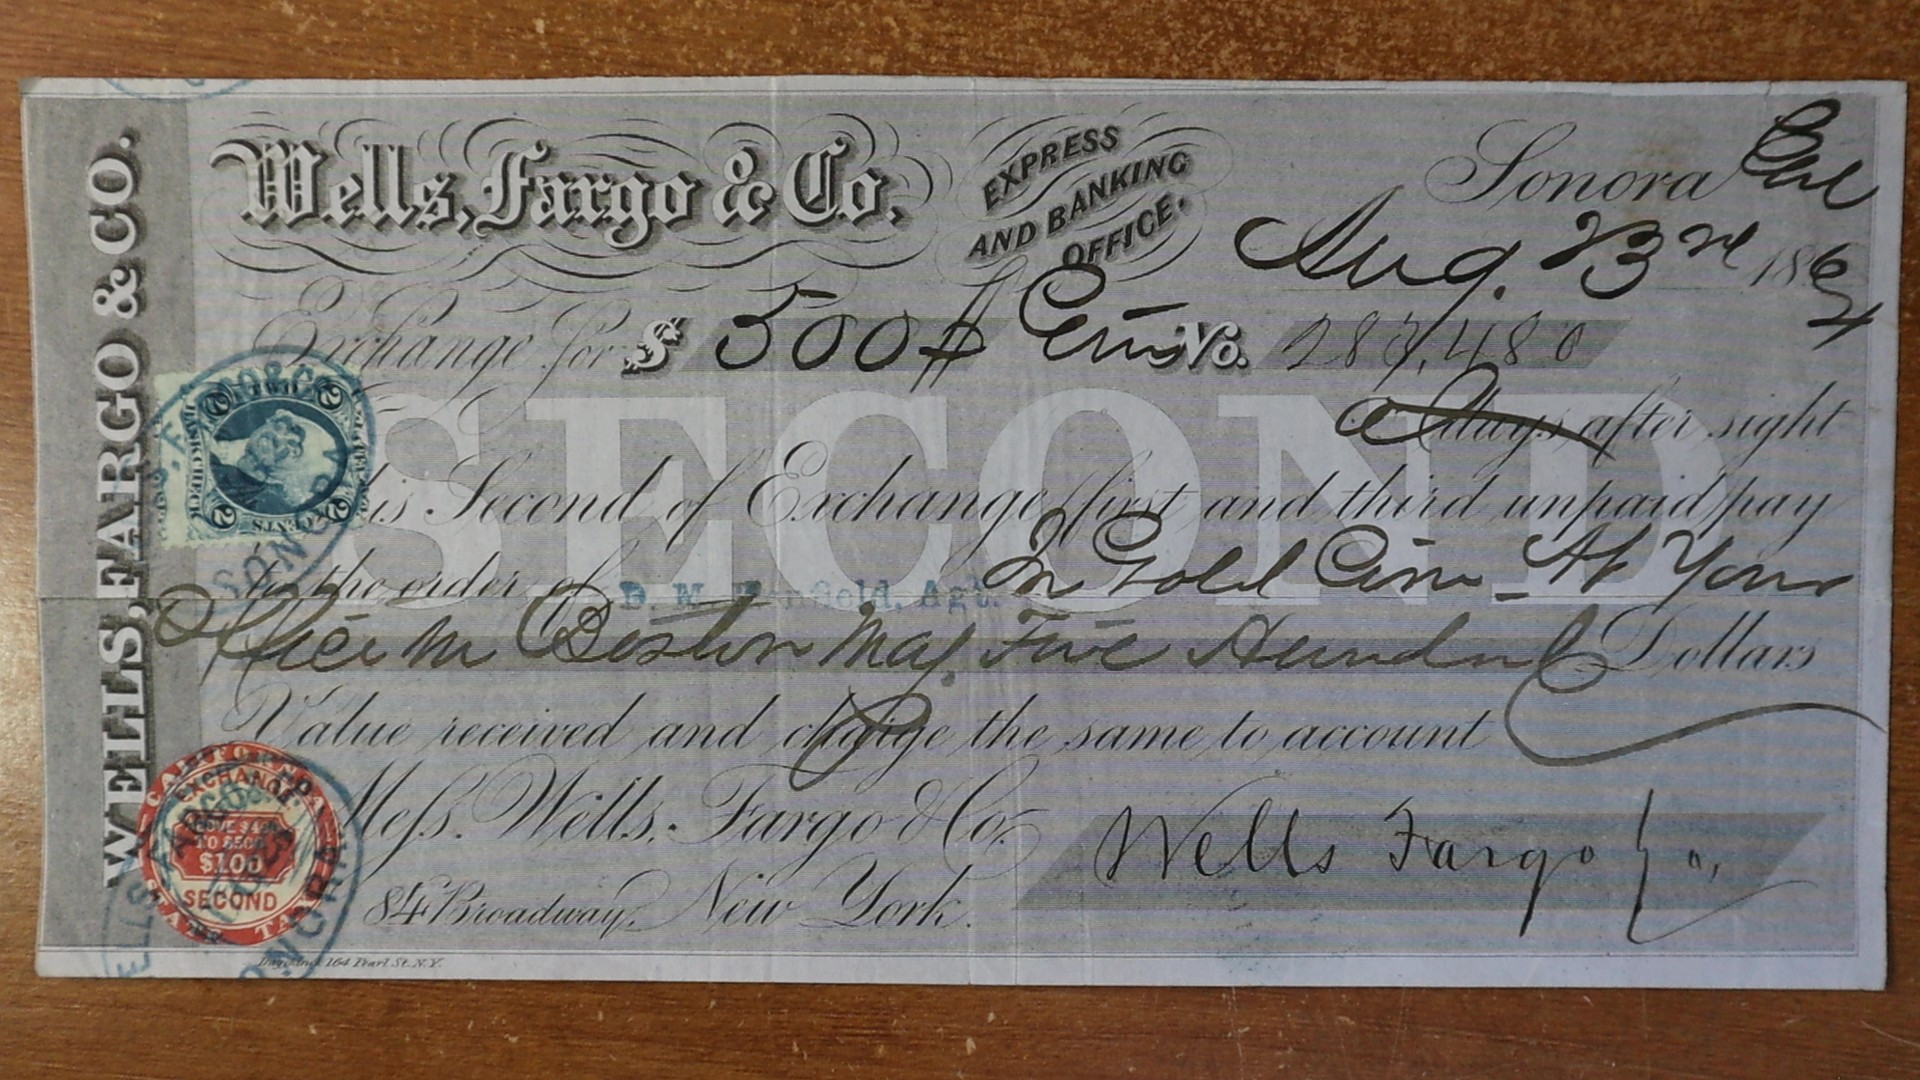 WELLS, FARGO & CO.
Wells, Fargo & Co.
EXPRESS
AND BANKING
OFFICE.
Sonora Cal
Aug. 23rd 1864
Exchange for $ 500 Coin No. 287,480
SECOND
days after sight
this Second of Exchange (first and third unpaid) pay
to the order of In Gold Coin At Your
Office in Boston Mas Five Hundred Dollars
Value received and charge the same to account
Mess. Wells, Fargo & Co.
Wells Fargo & Co.
84 Broadway, New York.
164 Pearl St. N.Y.
TWO
2 CENTS 2
BANK CHECK
WELLS, FARGO & CO.
AUG 23
SONORA
CALIFORNIA
EXCHANGE
TO $500
$1.00
SECOND
STATE TAX
WELLS FARGO
AUG 23
SONORA